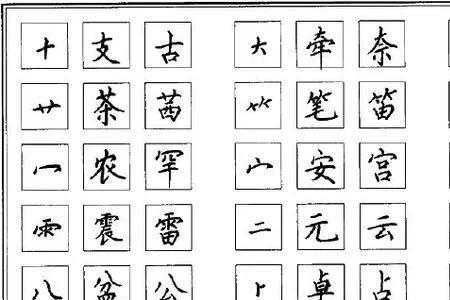 十 支 古 大 牵 奈
艹 茶 茜 ⺮ 笔 笛
冖 农 罕 宀 安 宫
雨 震 雷 二 元 云
八 盆 公 卜 卓 占